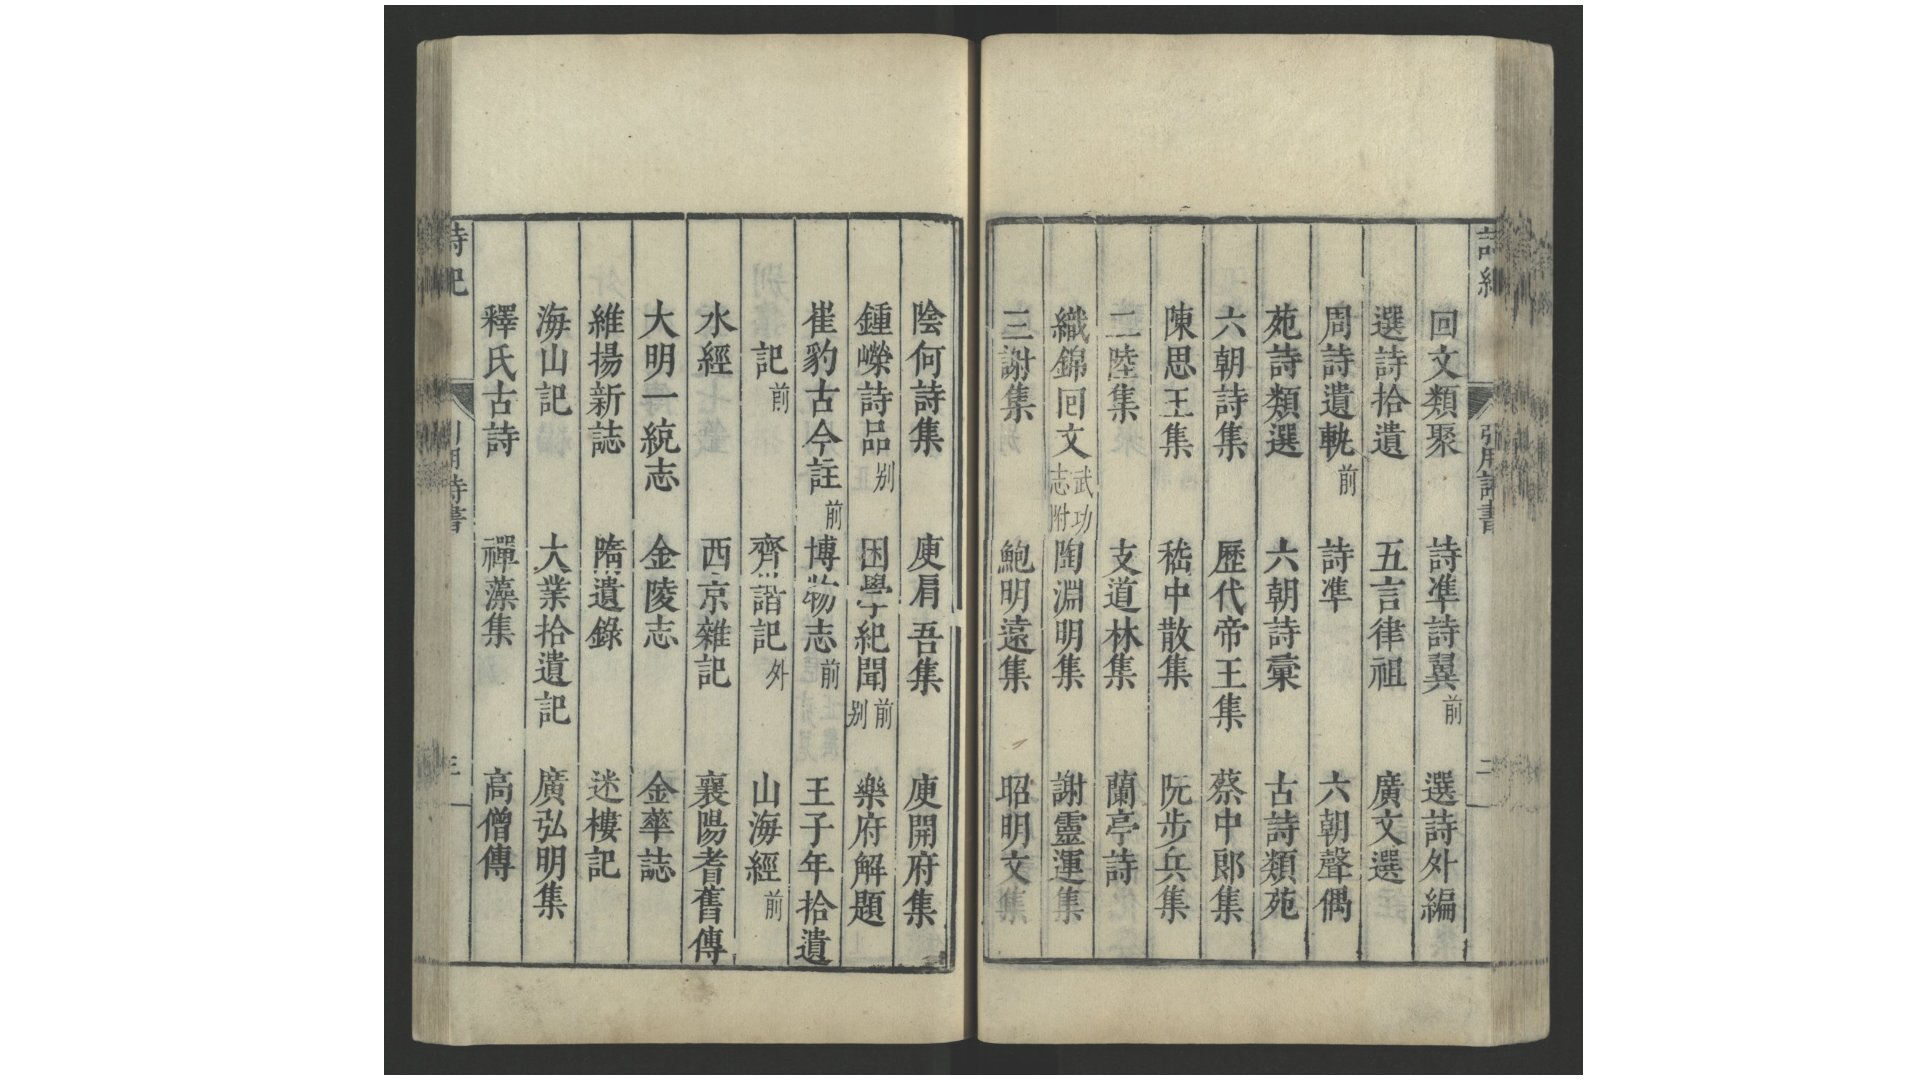 詩紀 引用諸書 二
回文類聚 詩準詩翼前 選詩外編
選詩拾遺 五言律祖 廣文選
周詩遺軌前 詩準 六朝聲偶
苑詩類選 六朝詩彙 古詩類苑
六朝詩集 歷代帝王集 蔡中郎集
陳思王集 嵇中散集 阮步兵集
二陸集 支道林集 蘭亭詩
織錦回文武功志附 陶淵明集 謝靈運集
三謝集 鮑明遠集 昭明文集
陰何詩集 庾肩吾集 庾開府集
鍾嶸詩品别 困學紀聞前别 樂府解題
崔豹古今註前 博物志前 王子年拾遺
記前 齊諧記外 山海經前
水經 西京雜記 襄陽耆舊傳
大明一統志 金陵志 金華誌
維揚新誌 隋遺錄 迷樓記
海山記 大業拾遺記 廣弘明集
釋氏古詩 禪藻集 高僧傳
詩紀 三